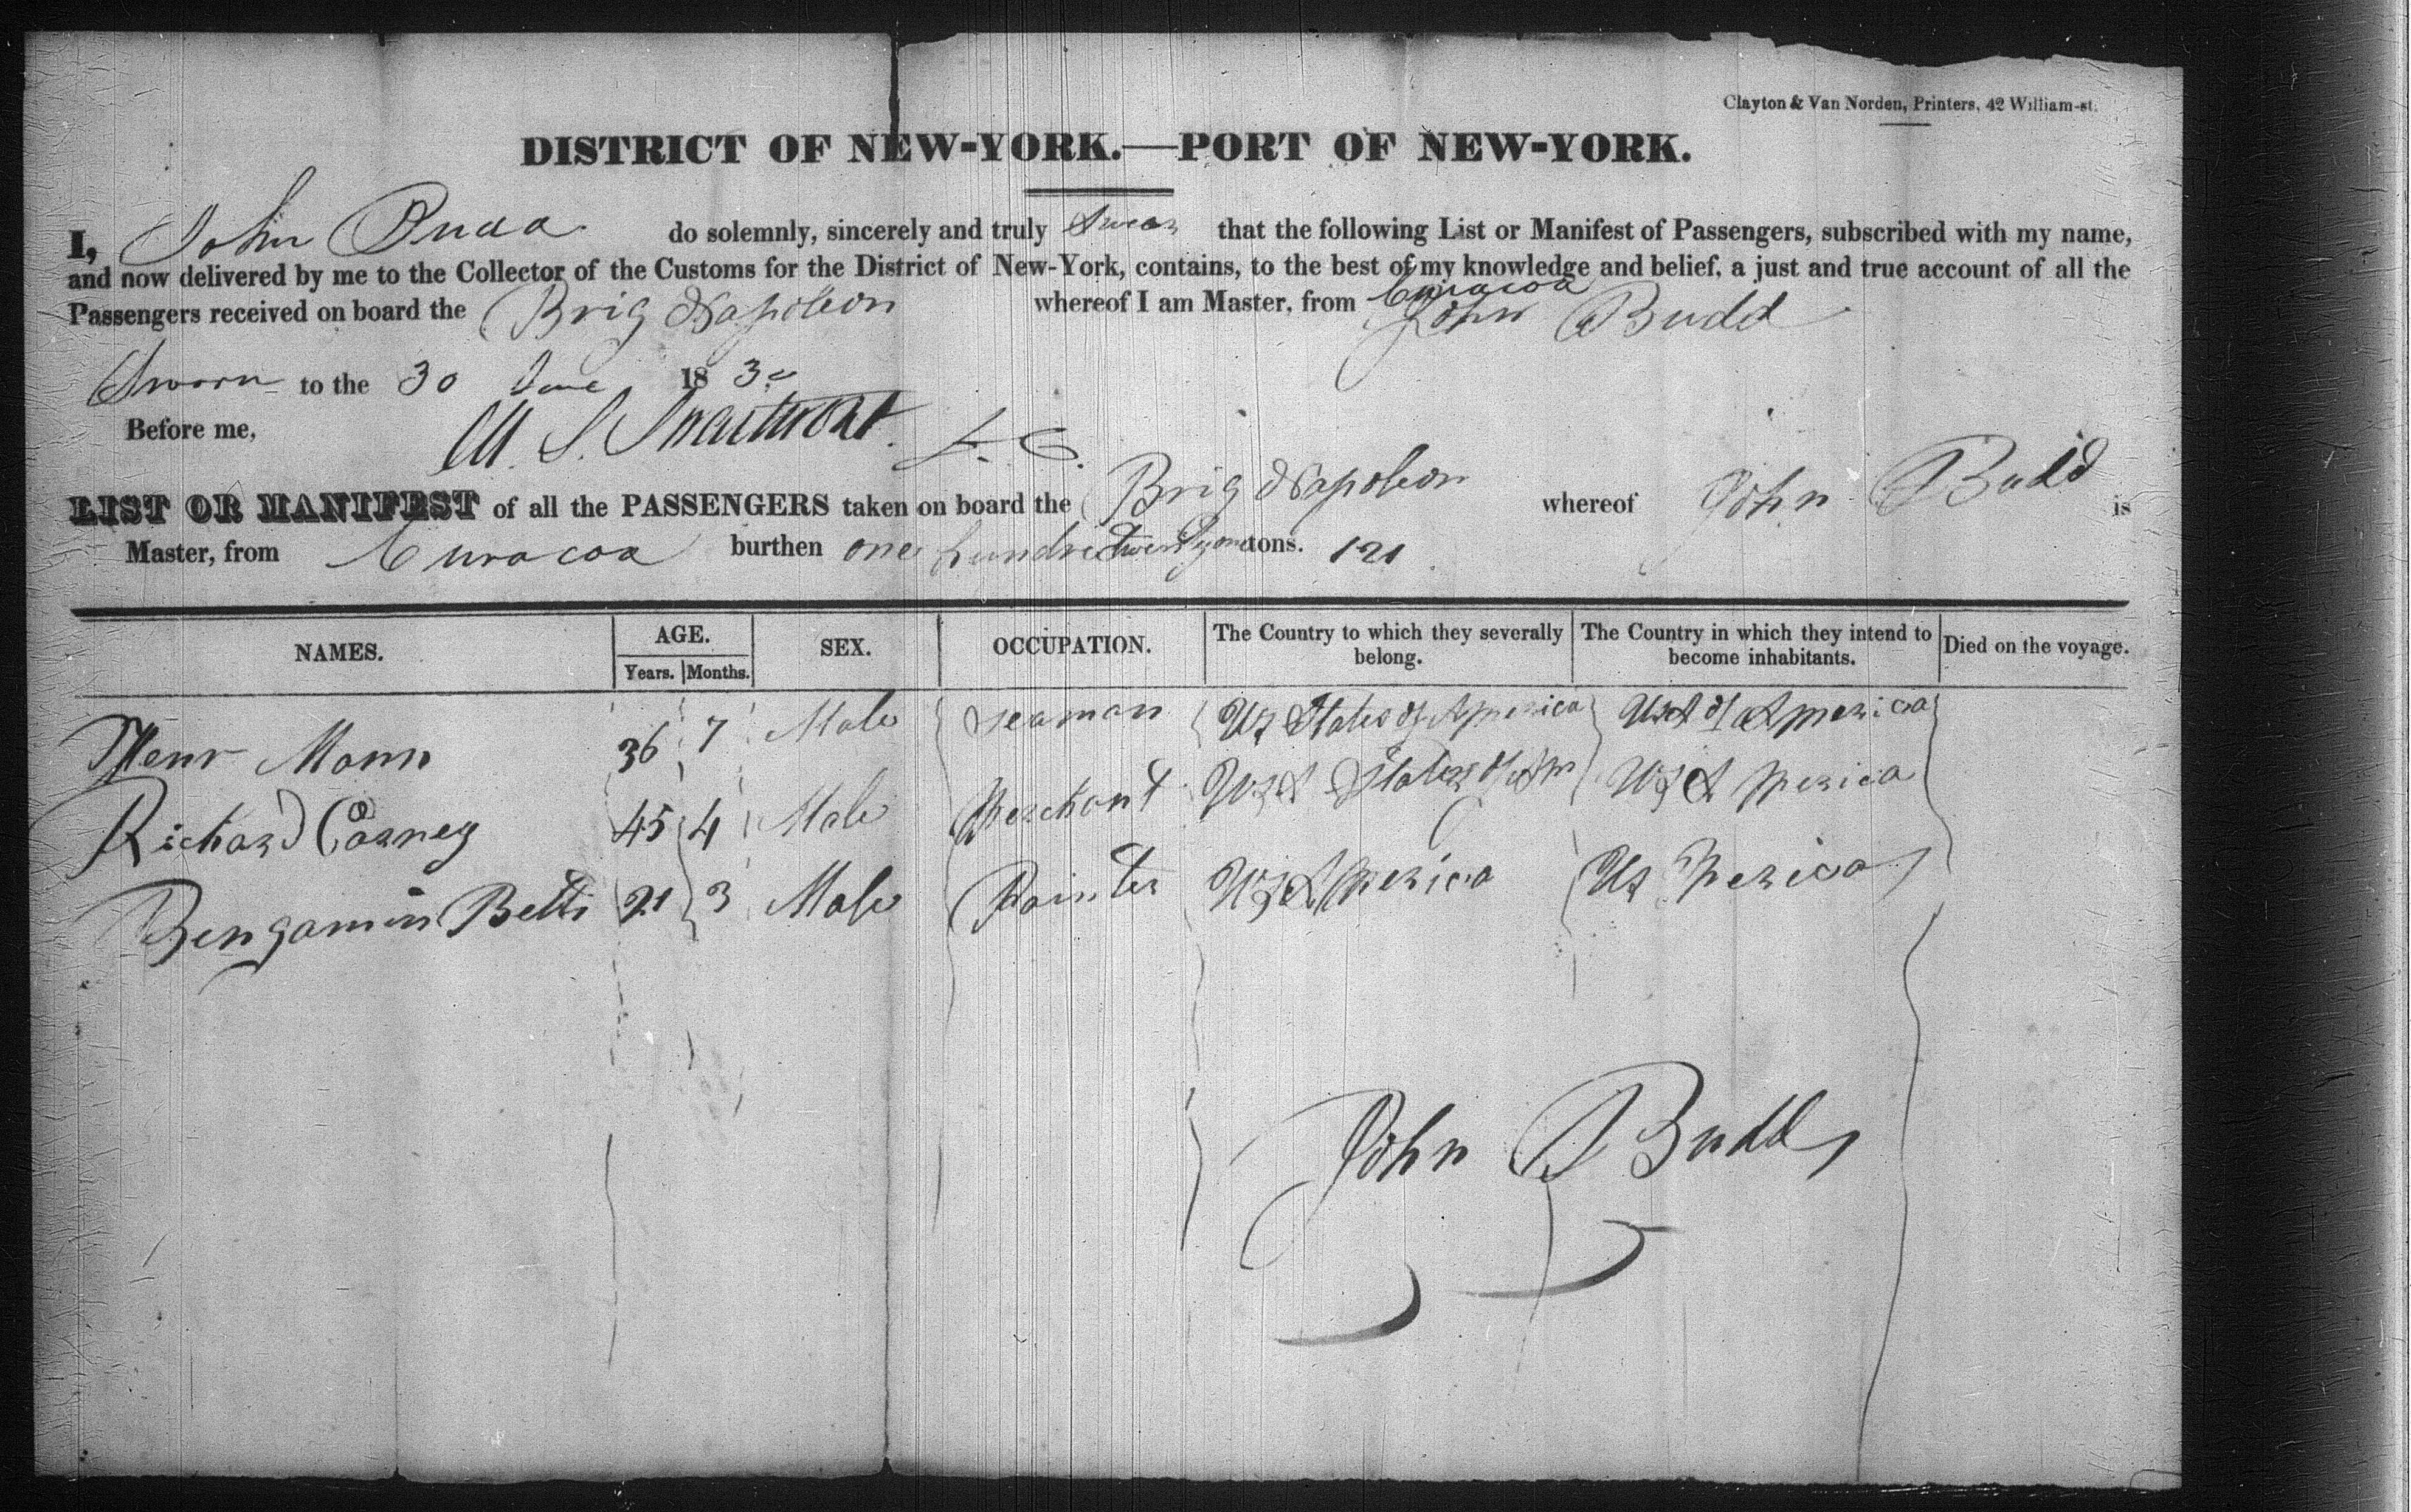 Clayton & Van Norden, Printers, 42 William-st.
DISTRICT OF NEW-YORK.—PORT OF NEW-YORK.
I, John Budd do solemnly, sincerely and truly Swear that the following List or Manifest of Passengers, subscribed with my name,
and now delivered by me to the Collector of the Customs for the District of New-York, contains, to the best of my knowledge and belief, a just and true account of all the
Passengers received on board the Brig Napoleon whereof I am Master, from Curacoa
John Budd
Sworn to the 30 June 1830
Before me,
LIST OR MANIFEST of all the PASSENGERS taken on board the Brig Napoleon whereof John Budd is
Master, from Curacoa burthen one hundred twenty one tons. 121
NAMES. AGE. Years. Months. SEX. OCCUPATION. The Country to which they severally belong. The Country in which they intend to become inhabitants. Died on the voyage.
Henr Mann 36 7 Male Seaman Us States of America Us of America
Richard Carney 45 4 Male Merchant States of Am America
Bengamin Betts 21 3 Male Painter America Us America
John Budd